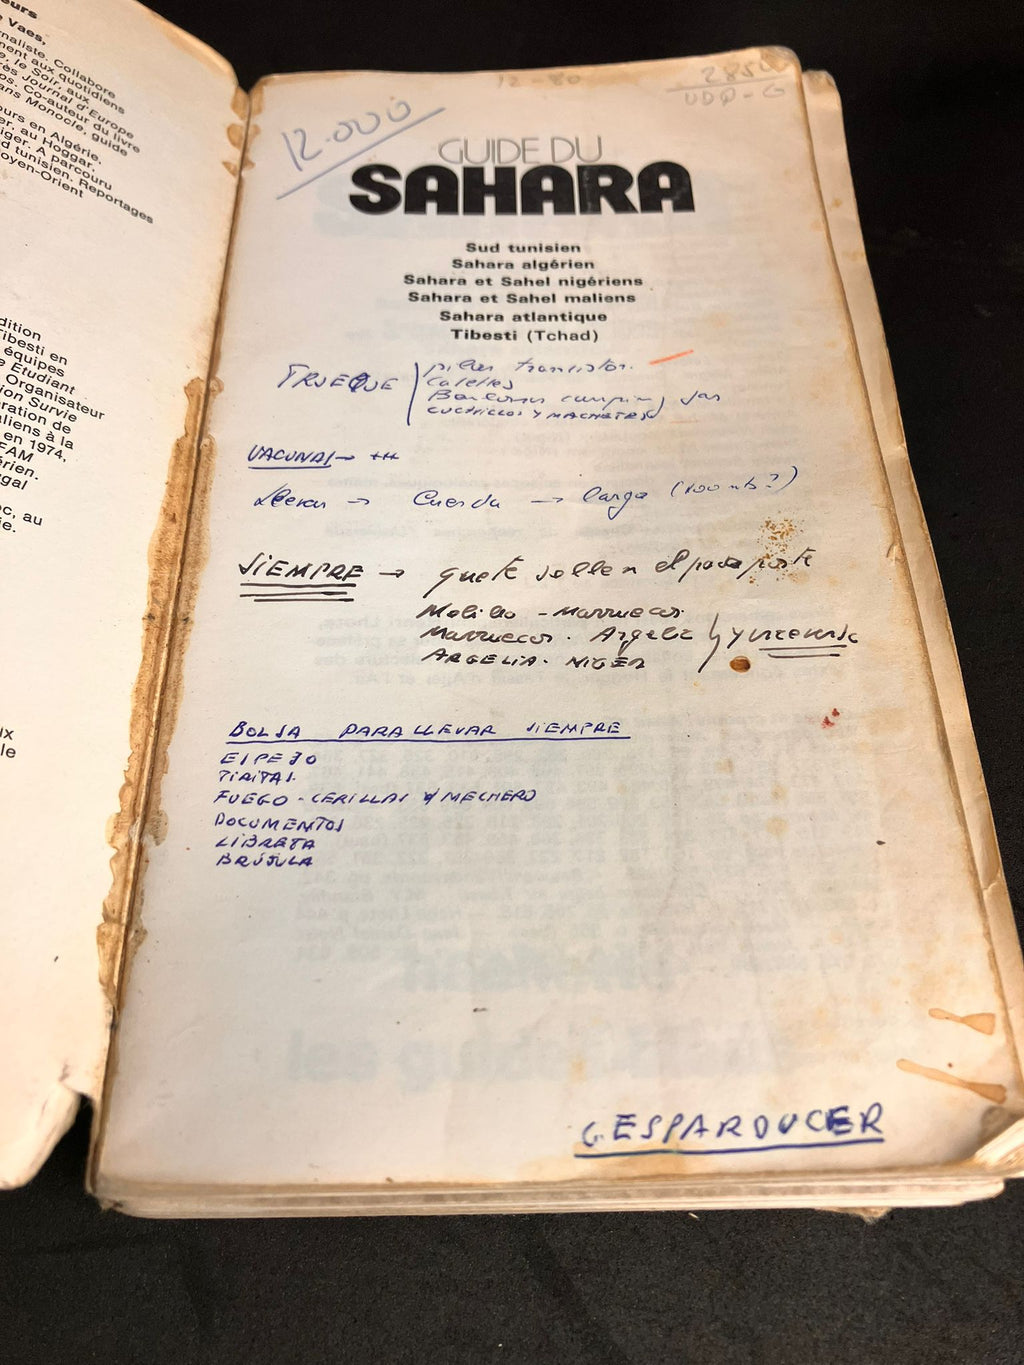 eurs
Vaes,
rnaliste. Collabore
ment aux quotidiens
e, le Soir, aux
ès Journal d'Europe
os. Co-auteur du livre
ans Monocle, guide
ours en Algérie.
er, au Hoggar,
iger. A parcouru
d tunisien. Reportages
oyen-Orient
dition
Tibesti en
équipes
e Etudiant
Organisateur
ion Survie
ration de
aliens à la
en 1974,
FAM
érien.
gal
oc, au
ie.
ux
le
12-80
UDO-G
12.000
GUIDE DU
SAHARA
Sud tunisien
Sahara algérien
Sahara et Sahel nigériens
Sahara et Sahel maliens
Sahara atlantique
Tibesti (Tchad)
TRUEQUE
pilas transistor.
camping gas
CUCHILLOS Y MACHETES
VACUNAS →
Llevar → Cuerda → larga (100 mts?)
SIEMPRE → que te sellen el pasaporte
Melilla - Marruecos
Marruecos - Argelia
ARGELIA - NIGER
y viceversa
BOLSA PARA LLEVAR SIEMPRE
ESPEJO
TIRITAS
FUEGO - CERILLAS Y MECHERO
DOCUMENTOS
LIBRETA
BRÚJULA
G. ESPARDUCER